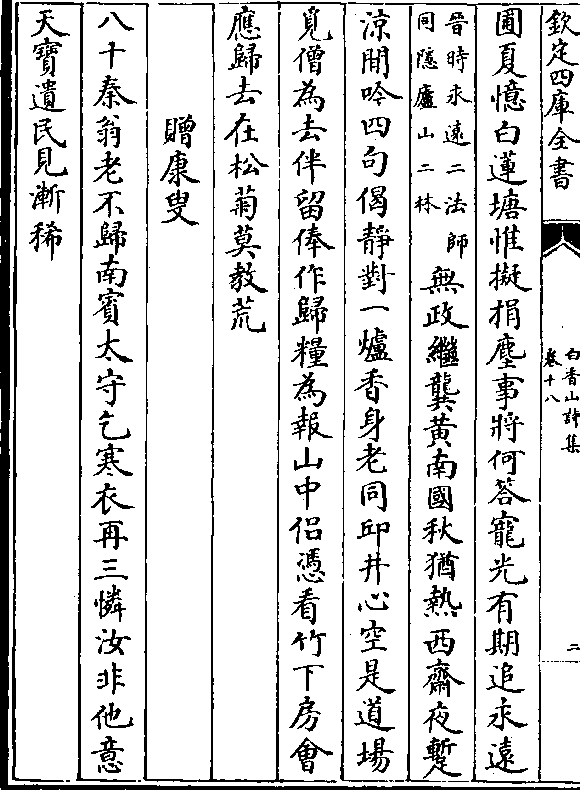 欽定四庫全書
白香山詩集
卷十八
二
圃夏憶白蓮塘惟擬捐塵事將何答寵光有期追永遠
晉時永遠二法師
同隱廬山二林
無政繼龔黃南國秋猶熱西齋夜暫
涼閒吟四句偈靜對一爐香身老同邱井心空是道場
覓僧為去伴留俸作歸糧為報山中侶憑看竹下房會
應歸去在松菊莫教荒
贈康叟
八十秦翁老不歸南賓太守乞寒衣再三憐汝非他意
天寶遺民見漸稀